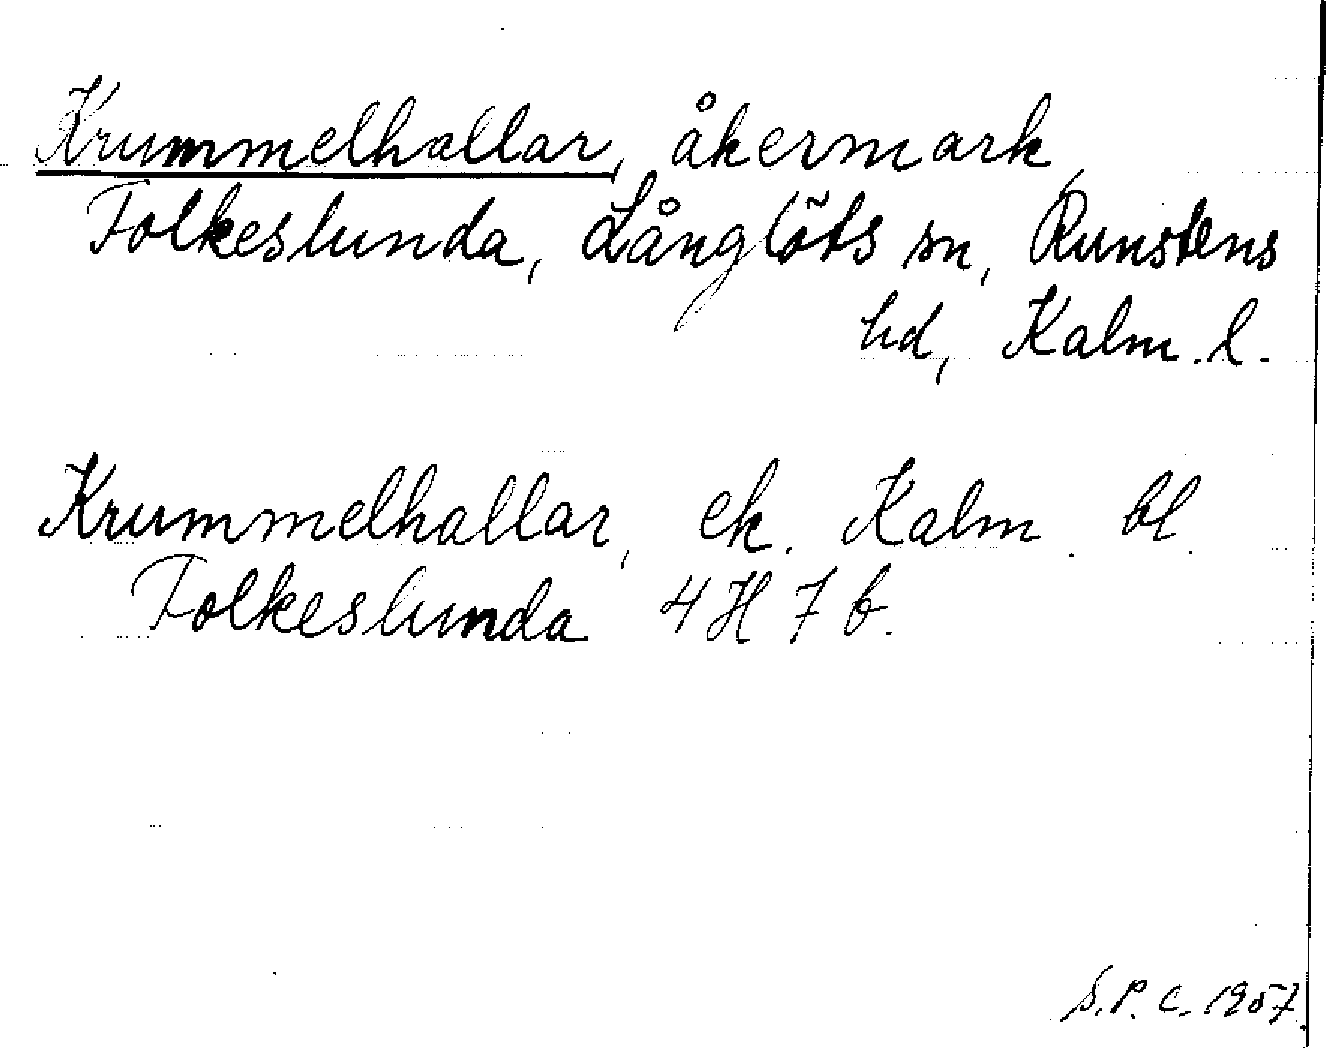 Krummelhallar, åkermark,
Folkeslunda, Långlöts sn, Runstens
hd, Kalm. l.
Krummelhallar, ek. Kalm. bl.
Folkeslunda 4H 7 b.
S.P.C. 1957.